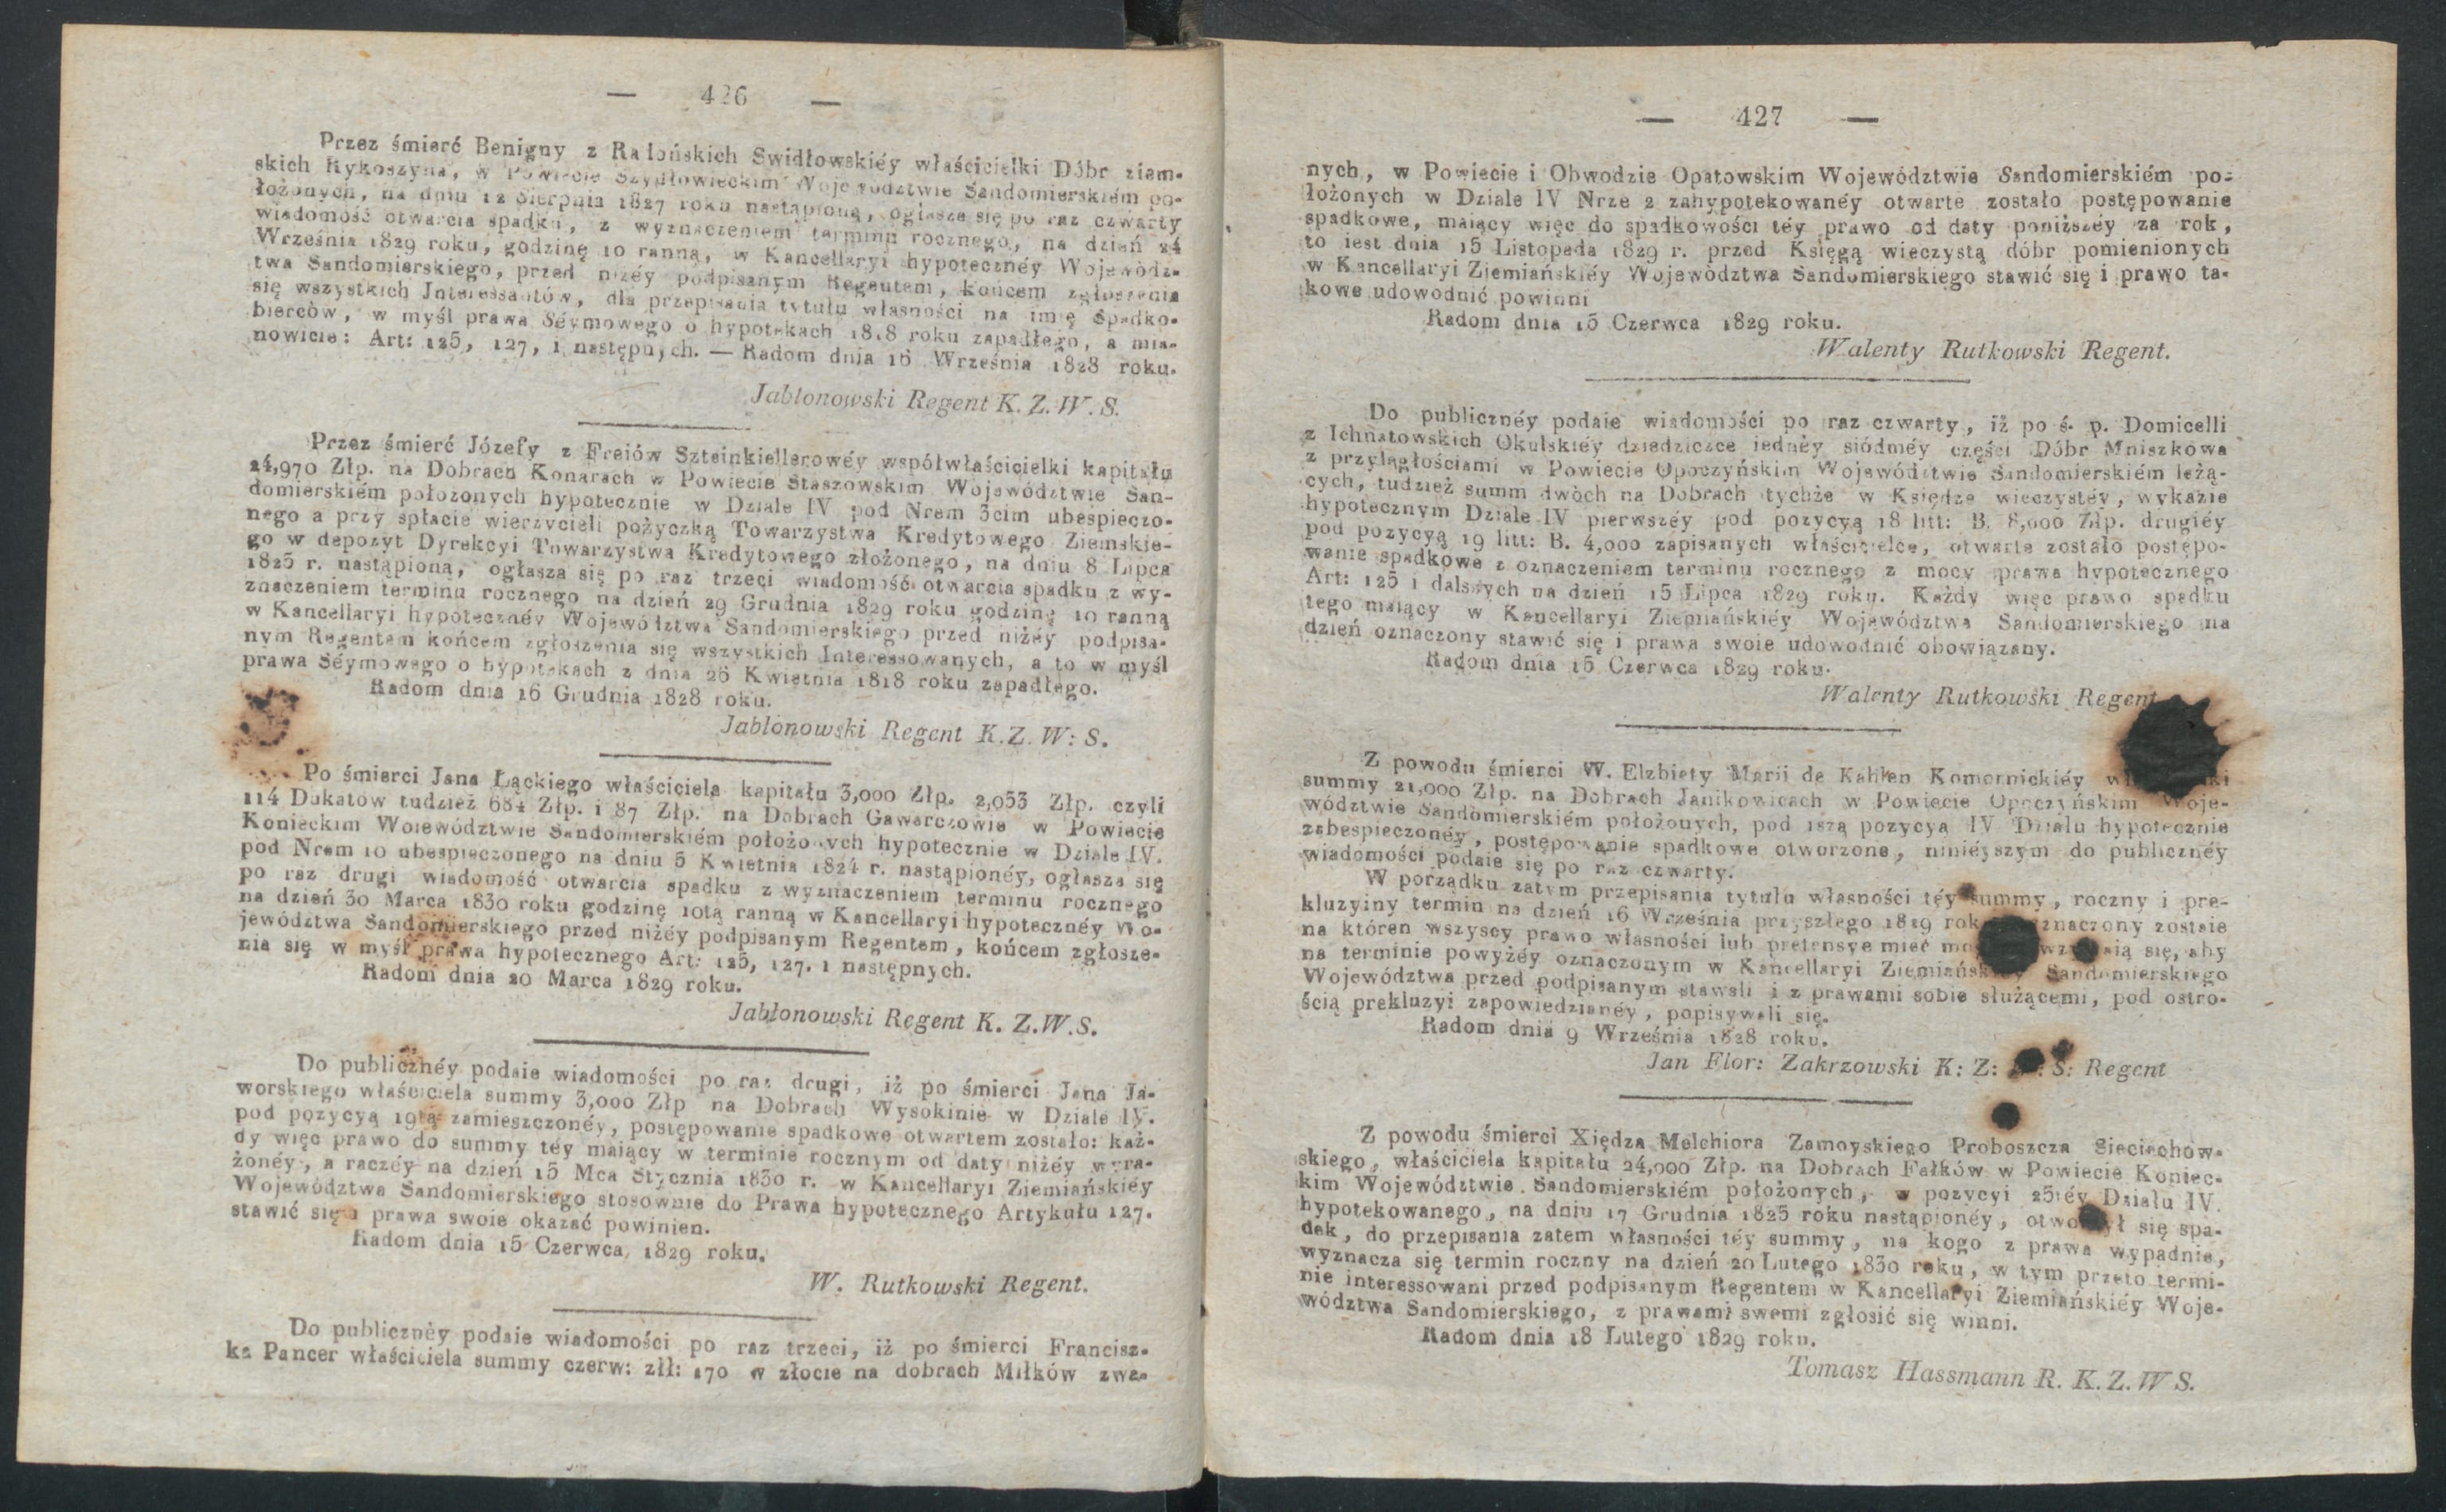 — 426 —
Przez śmierć Benigny z Radońskich Swidłowskiéy właścicielki Dóbr ziem-
skich Rykoszyna, w Powiecie Szydłowieckim Województwie Sandomierskiém po-
łożonych, na dniu 12 Sierpnia 1827 roku nastąpioną, ogłasza się po raz czwarty
wiadomość otwarcia spadku, z wyznaczeniem terminu rocznego, na dzień 24
Września 1829 roku, godzinę 10 ranną, w Kancellaryi hypotecznéy Wojewódz-
twa Sandomierskiego, przed niżéy podpisanym Regentem, końcem zgłoszenia
się wszystkich Jnteressantów, dla przepisania tytułu własności na imię Spadko-
bierców, w myśl prawa Séymowego o hypotekach 1818 roku zapadłego, a mia-
nowicie: Art: 125, 127, i następnych. — Radom dnia 16 Września 1828 roku.
Jabłonowski Regent K. Z. W. S.
Przez śmierć Józefy z Freiów Szteinkiellerowéy współwłaścicielki kapitału
24,970 Złp. na Dobrach Konarach w Powiecie Staszowskim Województwie San-
domierskiém położonych hypotecznie w Dziale IV pod Nrem 3cim ubespieczo-
nego a przy spłacie wierzycieli pożyczką Towarzystwa Kredytowego Ziemskie-
go w depozyt Dyrekcyi Towarzystwa Kredytowego złożonego, na dniu 8 Lipca
1825 r. nastąpioną, ogłasza się po raz trzeci wiadomość otwarcia spadku z wy-
znaczeniem terminu rocznego na dzień 29 Grudnia 1829 roku godzinę 10 ranną
w Kancellaryi hypotecznéy Województwa Sandomierskiego przed niżéy podpisa-
nym Regentem końcem zgłoszenia się wszystkich Interessowanych, a to w myśl
prawa Séymowego o hypotekach z dnia 26 Kwietnia 1818 roku zapadłego.
Radom dnia 16 Grudnia 1828 roku.
Jabłonowski Regent K. Z. W: S.
Po śmierci Jana Łąckiego właściciela kapitału 3,000 Złp. 2,053 Złp. czyli
114 Dukatów tudzież 684 Złp. i 87 Złp. na Dobrach Gawarczowie w Powiecie
Konieckim Woiewództwie Sandomierskiém położonych hypotecznie w Dziale IV.
pod Nrem 10 ubespieczonego na dniu 5 Kwietnia 1824 r. nastąpionéy, ogłasza się
po raz drugi wiadomość otwarcia spadku z wyznaczeniem terminu rocznego
na dzień 30 Marca 1830 roku godzinę 10tą ranną w Kancellaryi hypotecznéy Wo-
jewództwa Sandomierskiego przed niżéy podpisanym Regentem, końcem zgłosze-
nia się w myśl prawa hypotecznego Art: 125, 127. i następnych.
Radom dnia 20 Marca 1829 roku.
Jabłonowski Regent K. Z.W.S.
Do publicznéy podaie wiadomości po raz drugi, iż po śmierci Jana Ja-
worskiego właściciela summy 3,000 Złp na Dobrach Wysokinie w Dziale IV.
pod pozycyą 19tą zamieszczonéy, postępowanie spadkowe otwartem zostało: każ-
dy więc prawo do summy téy maiący w terminie rocznym od daty niżéy wyra-
żonéy, a raczéy na dzień 15 Mca Stycznia 1830 r. w Kancellaryi Ziemiańskiéy
Województwa Sandomierskiego stosownie do Prawa hypotecznego Artykułu 127.
stawić się i prawa swoie okazać powinien.
Radom dnia 15 Czerwca 1829 roku.
W. Rutkowski Regent.
Do publicznéy podaie wiadomości po raz trzeci, iż po śmierci Francisz-
ka Pancer właściciela summy czerw: złł: 170 w złocie na dobrach Miłków zwa-
— 427 —
nych, w Powiecie i Obwodzie Opatowskim Województwie Sandomierskiém po-
łożonych w Dziale IV Nrze 2 zahypotekowanéy otwarte zostało postępowanie
spadkowe, maiący więc do spadkowości téy prawo od daty poniższéy za rok,
to iest dnia 15 Listopada 1829 r. przed Księgą wieczystą dóbr pomienionych
w Kancellaryi Ziemiańskiéy Województwa Sandomierskiego stawić się i prawo ta-
kowe udowodnić powinni
Radom dnia 15 Czerwca 1829 roku.
Walenty Rutkowski Regent.
Do publicznéy podaie wiadomości po raz czwarty, iż po ś. p. Domicelli
z Ichnatowskich Okulskiéy dziedziczce iednéy siódméy części Dóbr Mniszkowa
z przyległościami w Powiecie Opoczyńskim Województwie Sandomierskiém leżą-
cych, tudzież summ dwóch na Dobrach tychże w Księdze wieczystéy, wykazie
hypotecznym Dziale IV pierwszéy pod pozycyą 18 litt: B. 8,000 Złp. drugiéy
pod pozycyą 19 litt: B. 4,000 zapisanych właścicielce, otwarte zostało postępo-
wanie spadkowe z oznaczeniem terminu rocznego z mocy prawa hypotecznego
Art: 125 i dalszych na dzień 15 Lipca 1829 roku. Każdy więc prawo spadku
tego maiący w Kancellaryi Ziemiańskiéy Województwa Sandomierskiego na
dzień oznaczony stawić się i prawa swoie udowodnić obowiązany.
Radom dnia 15 Czerwca 1829 roku.
Walenty Rutkowski Regent
Z powodu śmierci W. Elzbiety Marii de Kahlen Komornickiéy
summy 21,000 Złp. na Dobrach Janikowicach w Powiecie Opoczyńskim Woje-
wództwie Sandomierskiém położonych, pod 1szą pozycya IV Działu hypotecznie
zabespieczonéy, postępowanie spadkowe otworzone, niniéyszym do publicznéy
wiadomości podaie się po raz czwarty.
W porządku zatym przepisania tytułu własności téy summy, roczny i pre-
kluzyiny termin na dzień 16 Września przyszłego 1829 znaczony zostaie
na któren wszyscy prawo własności lub pretensye mieć się, aby
na terminie powyżéy oznaczonym w Kancellaryi Ziemiańskiéy Sandomierskiego
Województwa przed podpisanym stawali i z prawami sobie służącemi, pod ostro-
ścią prekluzyi zapowiedzianéy, popisywali się.
Radom dnia 9 Września 1828 roku.
Jan Flor: Zakrzowski K: Z: S: Regent
Z powodu śmierci Xiędza Melchiora Zamoyskiego Proboszcza Sieciechow-
skiego, właściciela kapitału 24,000 Złp. na Dobrach Fałków w Powiecie Koniec-
kim Województwie Sandomierskiém położonych, w pozycyi 25téy Działu IV.
hypotekowanego, na dniu 17 Grudnia 1825 roku nastąpionéy, otworzył się spa-
dek, do przepisania zatem własności téy summy, na kogo z prawa wypadnie,
wyznacza się termin roczny na dzień 20 Lutego 1830 roku, w tym przeto termi-
nie interessowani przed podpisanym Regentem w Kancellaryi Ziemiańskiéy Woje-
wództwa Sandomierskiego, z prawami swemi zgłosić się winni.
Radom dnia 18 Lutego 1829 roku.
Tomasz Hassmann R. K. Z. W S.